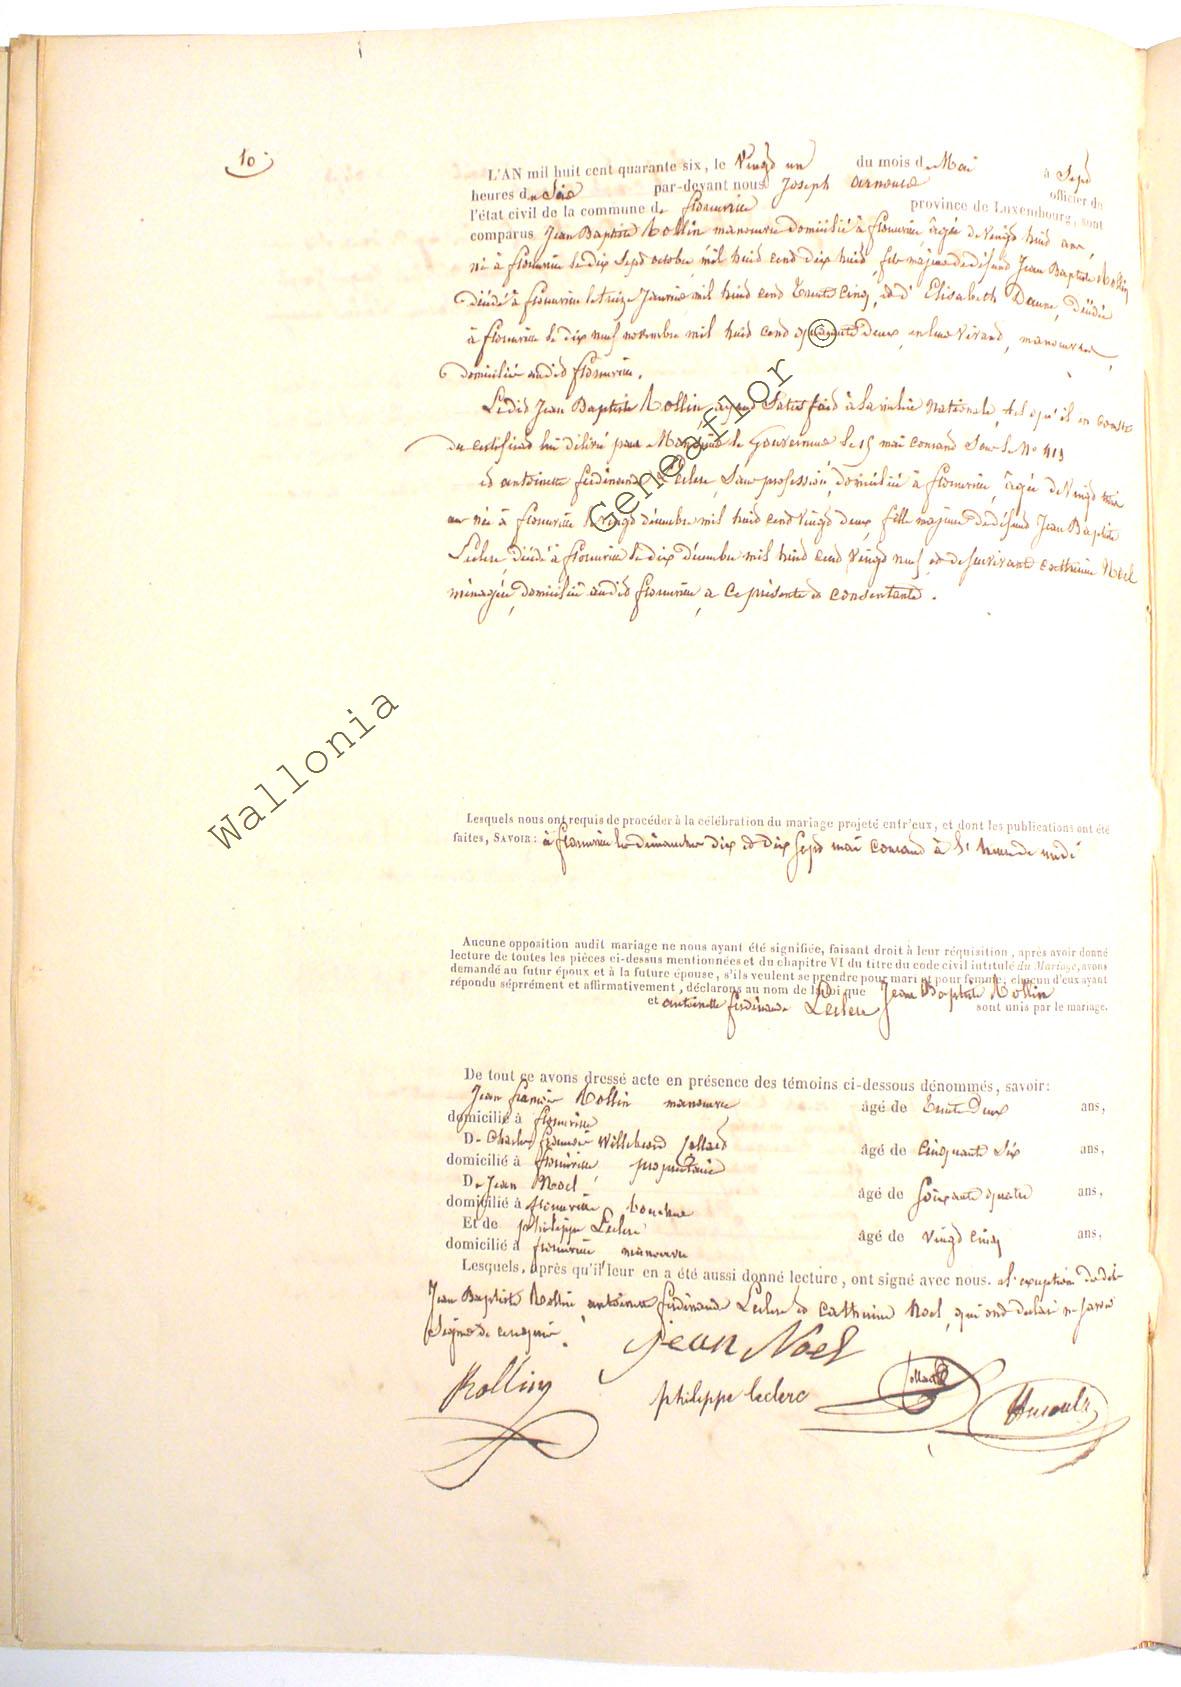 10.
L'AN mil huit cent quarante-six, le Vingt un du mois de Mai à Sept
heures du Soir par-devant nous Joseph arnould officier de
l'état civil de la commune de florenville province de Luxembourg, sont
comparus Jean Baptiste Rollin manoeuvre domicilié à florenville âgé de vingt huit ans,
né à florenville le dix Sept octobre mil huit cent dix huit, fils majeur de défunt Jean Baptiste Rollin
décédé à florenville le treize Janvier mil huit cent Trente Cinq, et d' Elisabeth décédée
à florenville le dix neuf novembre mil huit cent deux, en leur vivant, manoeuvres,
domiciliés audit florenville.
Ledit Jean Baptiste Rollin ayant Satisfait à la milice nationale, tel qu'il en conste
du certificat lui délivré par Monsieur le Gouverneur le 15 mai courant Sous le No 413
et antoinette ferdinande Leclere, Sans profession, domiciliée à florenville, âgée de Vingt trois
ans née à florenville le vingt décembre mil huit cent Vingt deux, fille majeure de défunt Jean Baptiste
Leclere, décédé à florenville le dix décembre mil huit cent vingt neuf, et de Survivante catherine Noel
ménagère, domiciliée audit florenville, à ce présente et consentante.
Geneaflor ©
Wallonia
Lesquels nous ont requis de procéder à la célébration du mariage projeté entr'eux, et dont les publications ont été
faites, SAVOIR: à florenville les dimanches dix et dix Sept mai courant à heure de midi
Aucune opposition audit mariage ne nous ayant été signifiée, faisant droit à leur réquisition, après avoir donné
lecture de toutes les pièces ci-dessus mentionnées et du chapitre VI du titre du code civil intitulé du Mariage, avons
demandé au futur époux et à la future épouse, s'ils veulent se prendre pour mari et pour femme; chacun d'eux ayant
répondu séprrément et affirmativement, déclarons au nom de la loi que Jean Baptiste Rollin
et antoinette ferdinande Leclere sont unis par le mariage.
De tout ce avons dressé acte en présence des témoins ci-dessous dénommés, savoir:
Jean francois Rollin manoeuvre âgé de Trente Deux ans,
domicilié à florenville
De Charles francois Willebrord Collard âgé de Cinquante Six ans,
domicilié à florenville, propriétaire
De Jean Noel âgé de Soixante quatre ans,
domicilié à florenville
Et de philippe Leclere âgé de vingt cinq ans,
domicilié à florenville manoeuvre
Lesquels, après qu'il leur en a été aussi donné lecture, ont signé avec nous. à l'exception desdits
Jean Baptiste Rollin, antoinette ferdinande Leclere et catherine Noel, qui ont déclaré ne savoir
Signer de ce requis.
jean Noel
Rollin philippe leclerc Collard